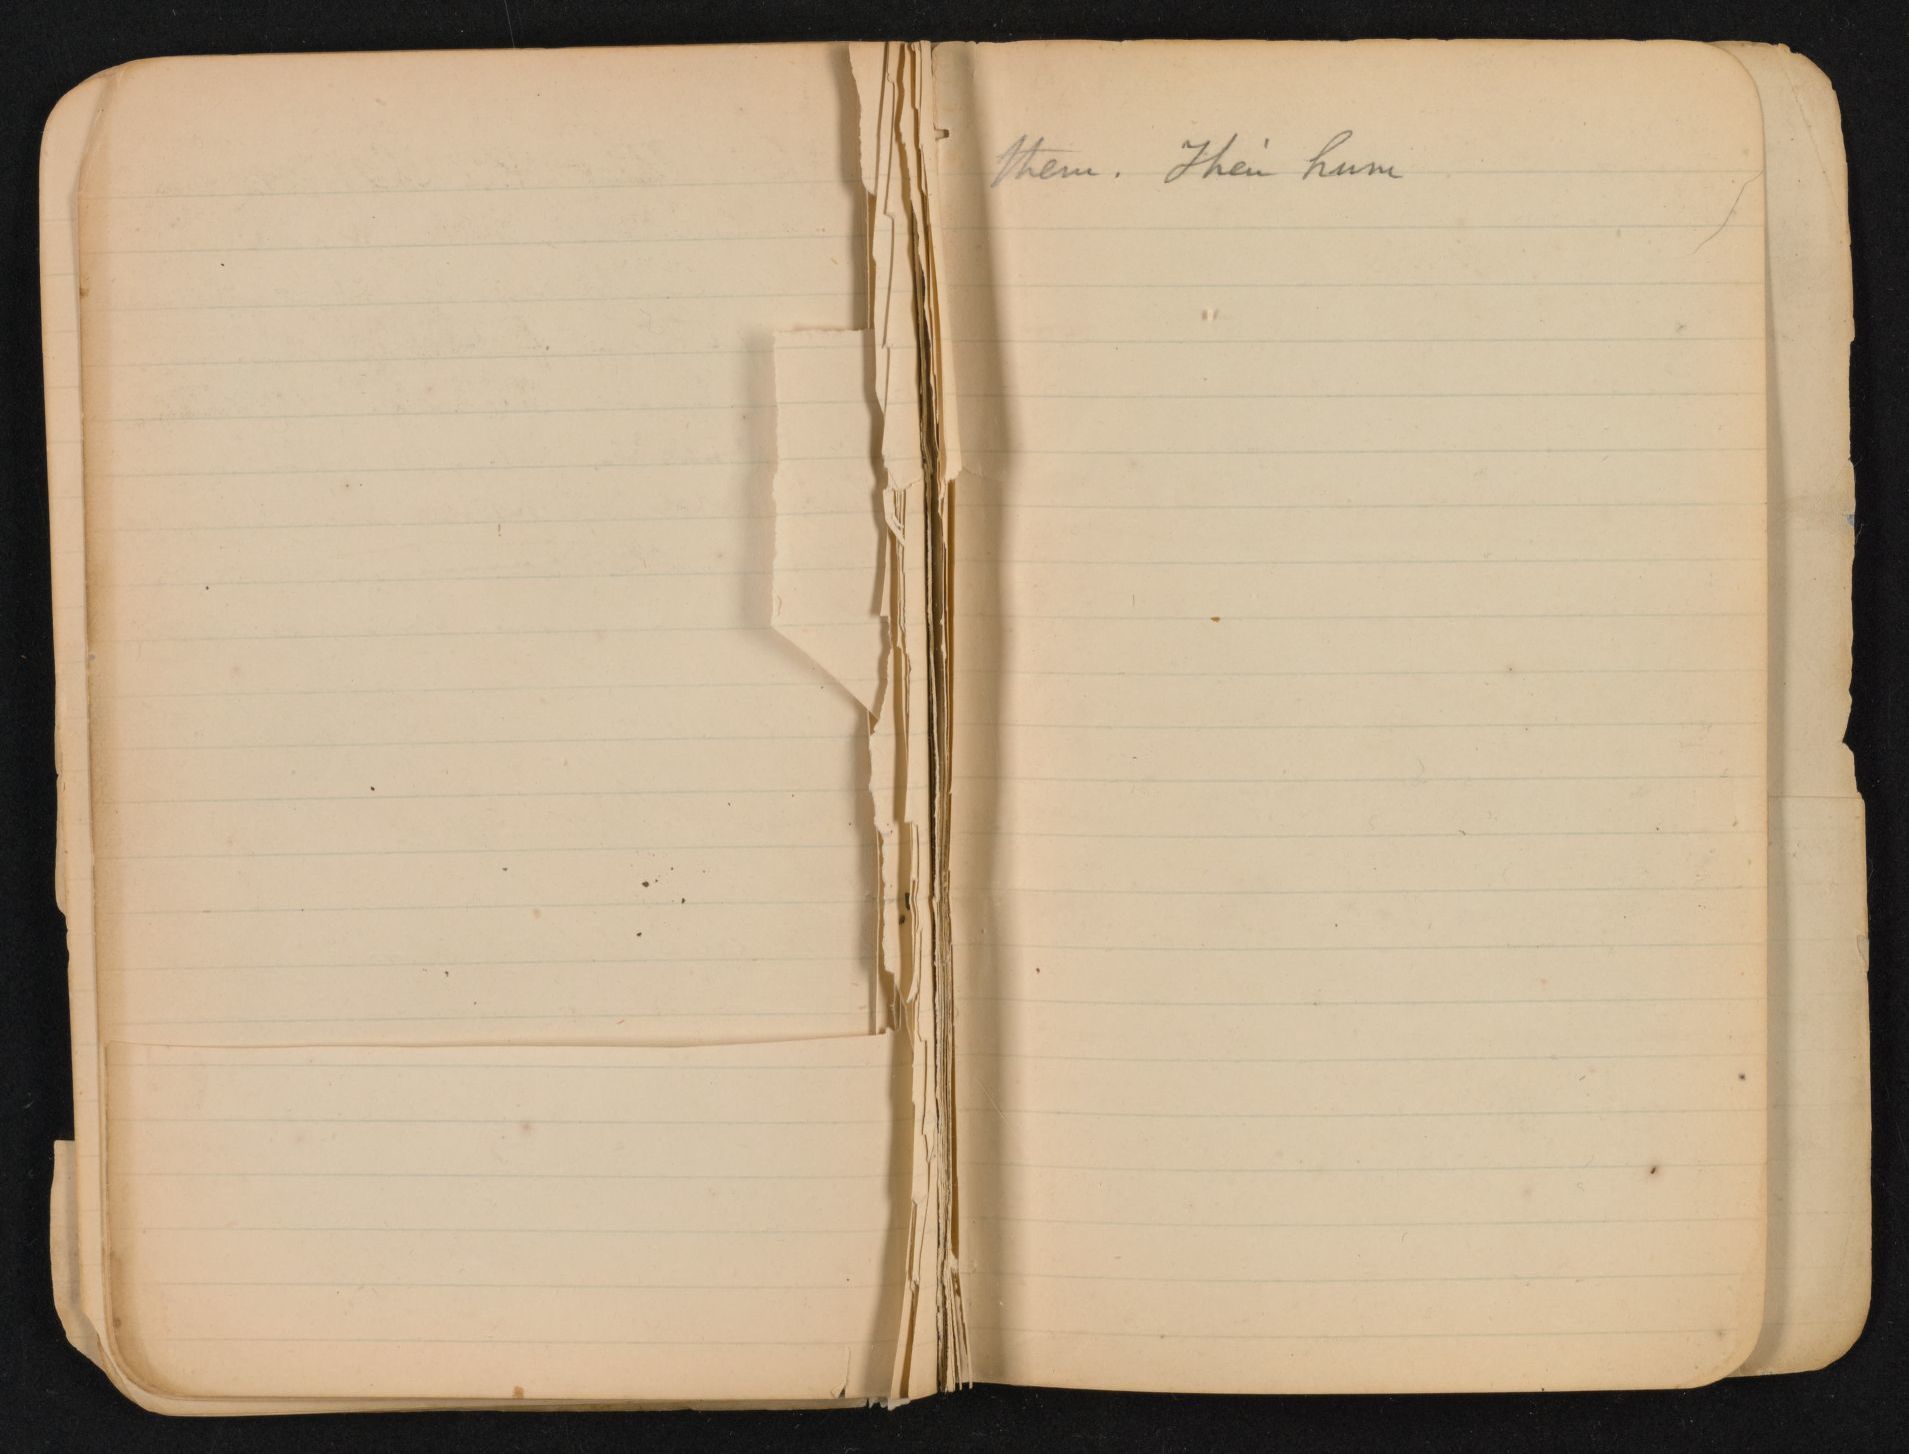 them. Their hum